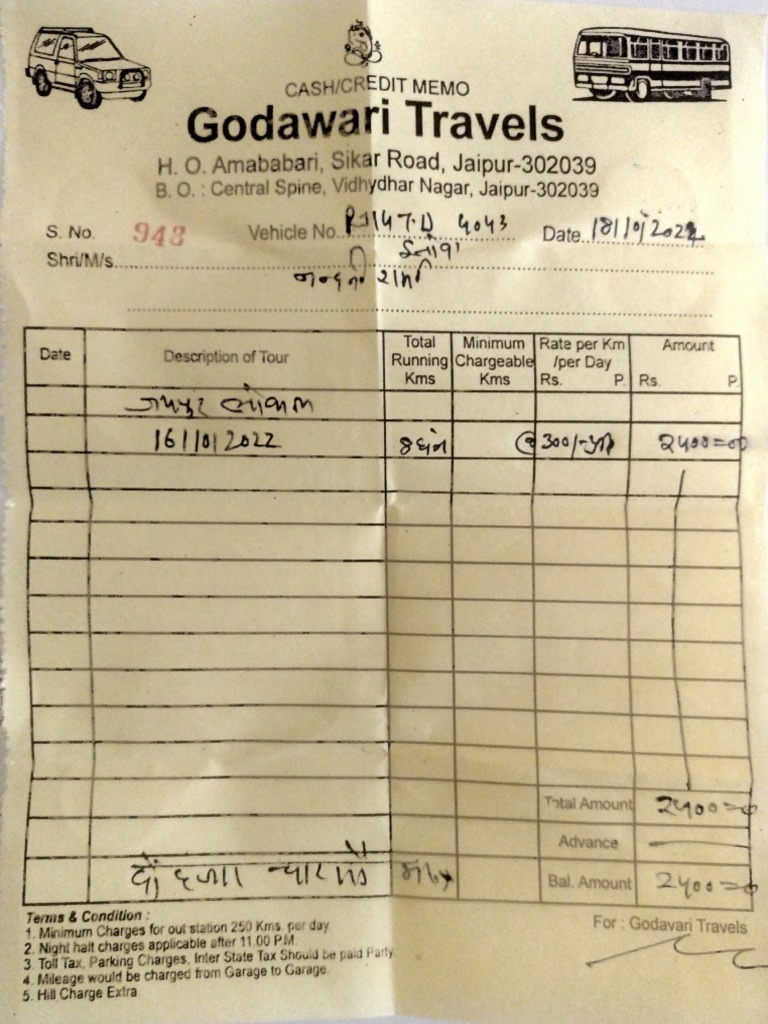 CASH/CREDIT MEMO
Godawari Travels
H. O. Amababari, Sikar Road, Jaipur-302039
B. O. : Central Spine, Vidhydhar Nagar, Jaipur-302039
S. No. 943 Vehicle No. RJ14TD 4043 Date 18/10/2022
Shri/M/s. इनोवा
Date Description of Tour Total Running Kms Minimum Chargeable Kms Rate per Km /per Day Rs. P. Amount Rs. P.
जयपुर लोकल
16/10/2022 8 घंटे @ 300/- २४००=००
Total Amount २४००=००
Advance —
दो हजार चार सौ मात्र Bal. Amount २४००=००
Terms & Condition :
1. Minimum Charges for out station 250 Kms. per day
2. Night halt charges applicable after 11.00 P.M.
3. Toll Tax, Parking Charges, Inter State Tax Should be paid Party
4. Mileage would be charged from Garage to Garage
5. Hill Charge Extra
For : Godavari Travels